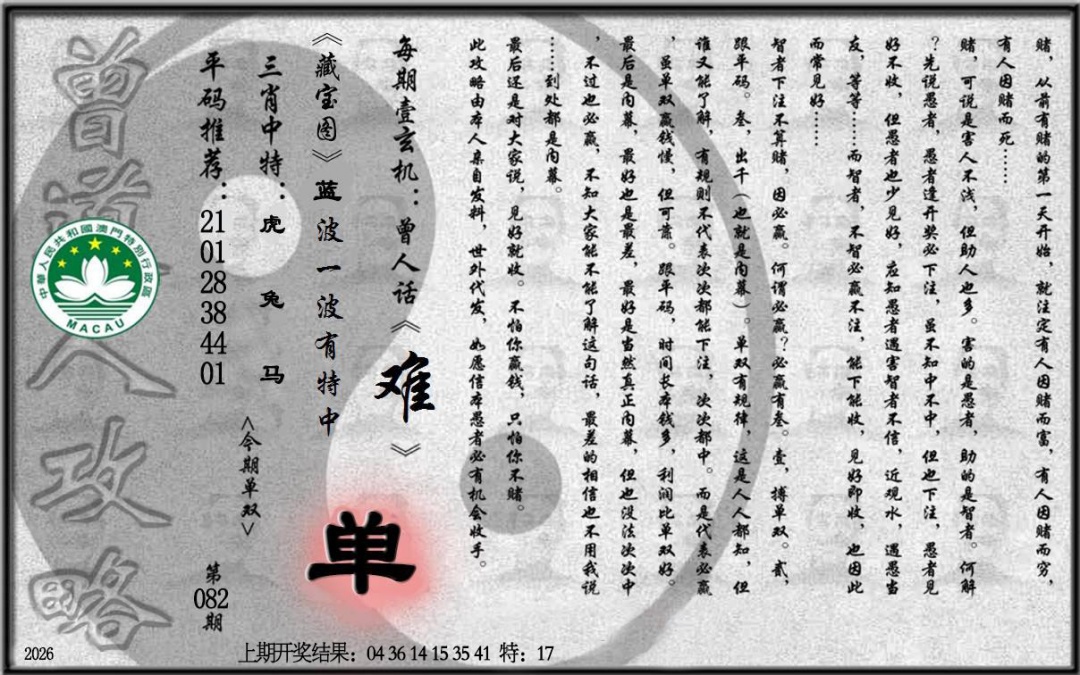 赌，从前有赌的第一天开始，就注定有人因赌而富，有人因赌而穷，
有人因赌而死……
赌，可说是害人不浅，但助人也多。害的是愚者，助的是智者。何解
？先说愚者，愚者逢开奖必下注，虽不知中不中，但也下注，愚者见
好不收，但愚者也少见好，应知愚者遇害智者不信，近观水，遇愚当
友，等等……而智者，不智必赢不注，能下能收，见好即收，也因此
而常见好……
智者下注不算赌，因必赢。何谓必赢？必赢有叁。壹，搏单双。贰，
跟单码。叁，出千（也就是内幕）。单双有规律，这是人人都知，但
谁又能了解，有规则不代表次次都能下注，次次都中。而是代表必赢
，虽单双赢钱慢，但可靠。跟单码，时间长本钱多，利润比单双好。
最后是内幕，最好也是最差，最好是当然真正内幕，但也没法次次中
，不过也必赢，不知大家能不能了解这句话，最差的相信也不用我说
……到处都是内幕。
最后还是对大家说，见好就收。不怕你赢钱，只怕你不赌。
此攻略由本人亲自发料，世外代发，如愿信本愚者必有机会收手。
每期壹玄机：曾人话《难》
《藏宝图》蓝波一波有特中
单
三肖中特：虎 兔 马
<今期单双>
平码推荐：21 01 28 38 44 01
第082期
曾道人攻略
中華人民共和國澳門特別行政區
MACAU
2026
上期开奖结果：04 36 14 15 35 41 特：17